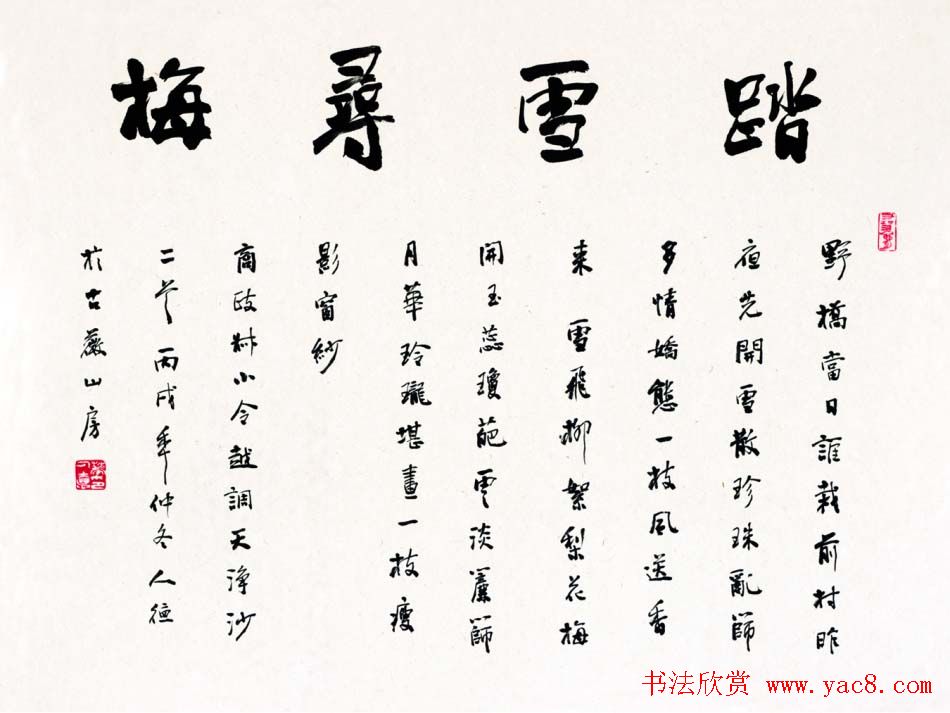 踏雪尋梅
野橋當日誰栽前村昨
夜先開雪散珍珠亂篩
多情嬌態一枝風送香
來 雪飛柳絮梨花梅
開玉蕊瓊葩雲淡簾篩
月華玲瓏堪畫一枝瘦
影窗紗
商政叔小令越調天淨沙
二首 丙戌年仲冬人德
於古山房
书法欣赏 www.yac8.com